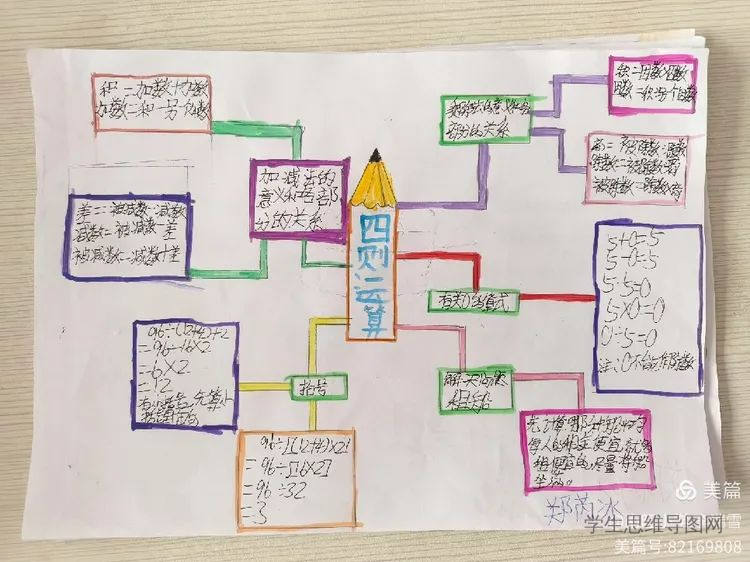 四则运算
积=加数+加数
加数=和-另一个加数
加减法的
意义和各部
分的关系
差=被减数-减数
减数=被减数-差
被减数=减数+差
96÷(12+4)×2
=96÷16×2
=6×2
=12
括号
96÷[(12+4)×2]
=96÷[16×2]
=96÷32
=3
部分的关系
积=因数×因数
因数=积÷另一个因数
商=被除数÷除数
除数=被除数÷商
被除数=除数×商
有关0的算式
5+0=5
5-0=5
5-5=0
5×0=0
0÷5=0
注:0不能作除数
解决问题
租船
坐满。
郑茵冰
美篇
学生思维导图网
美篇号:82169808